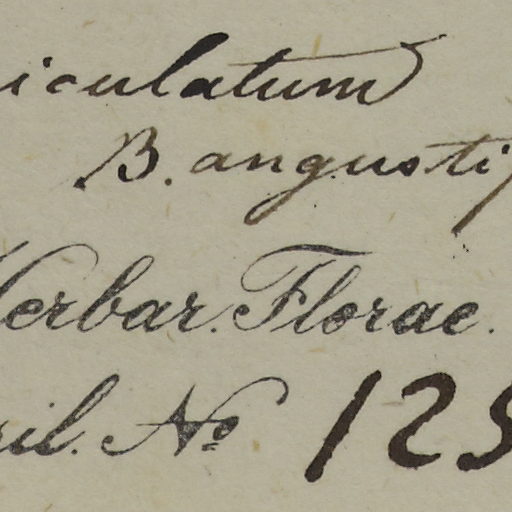 iculatum
B. angusti
Herbar. Florae.
ril. No 125